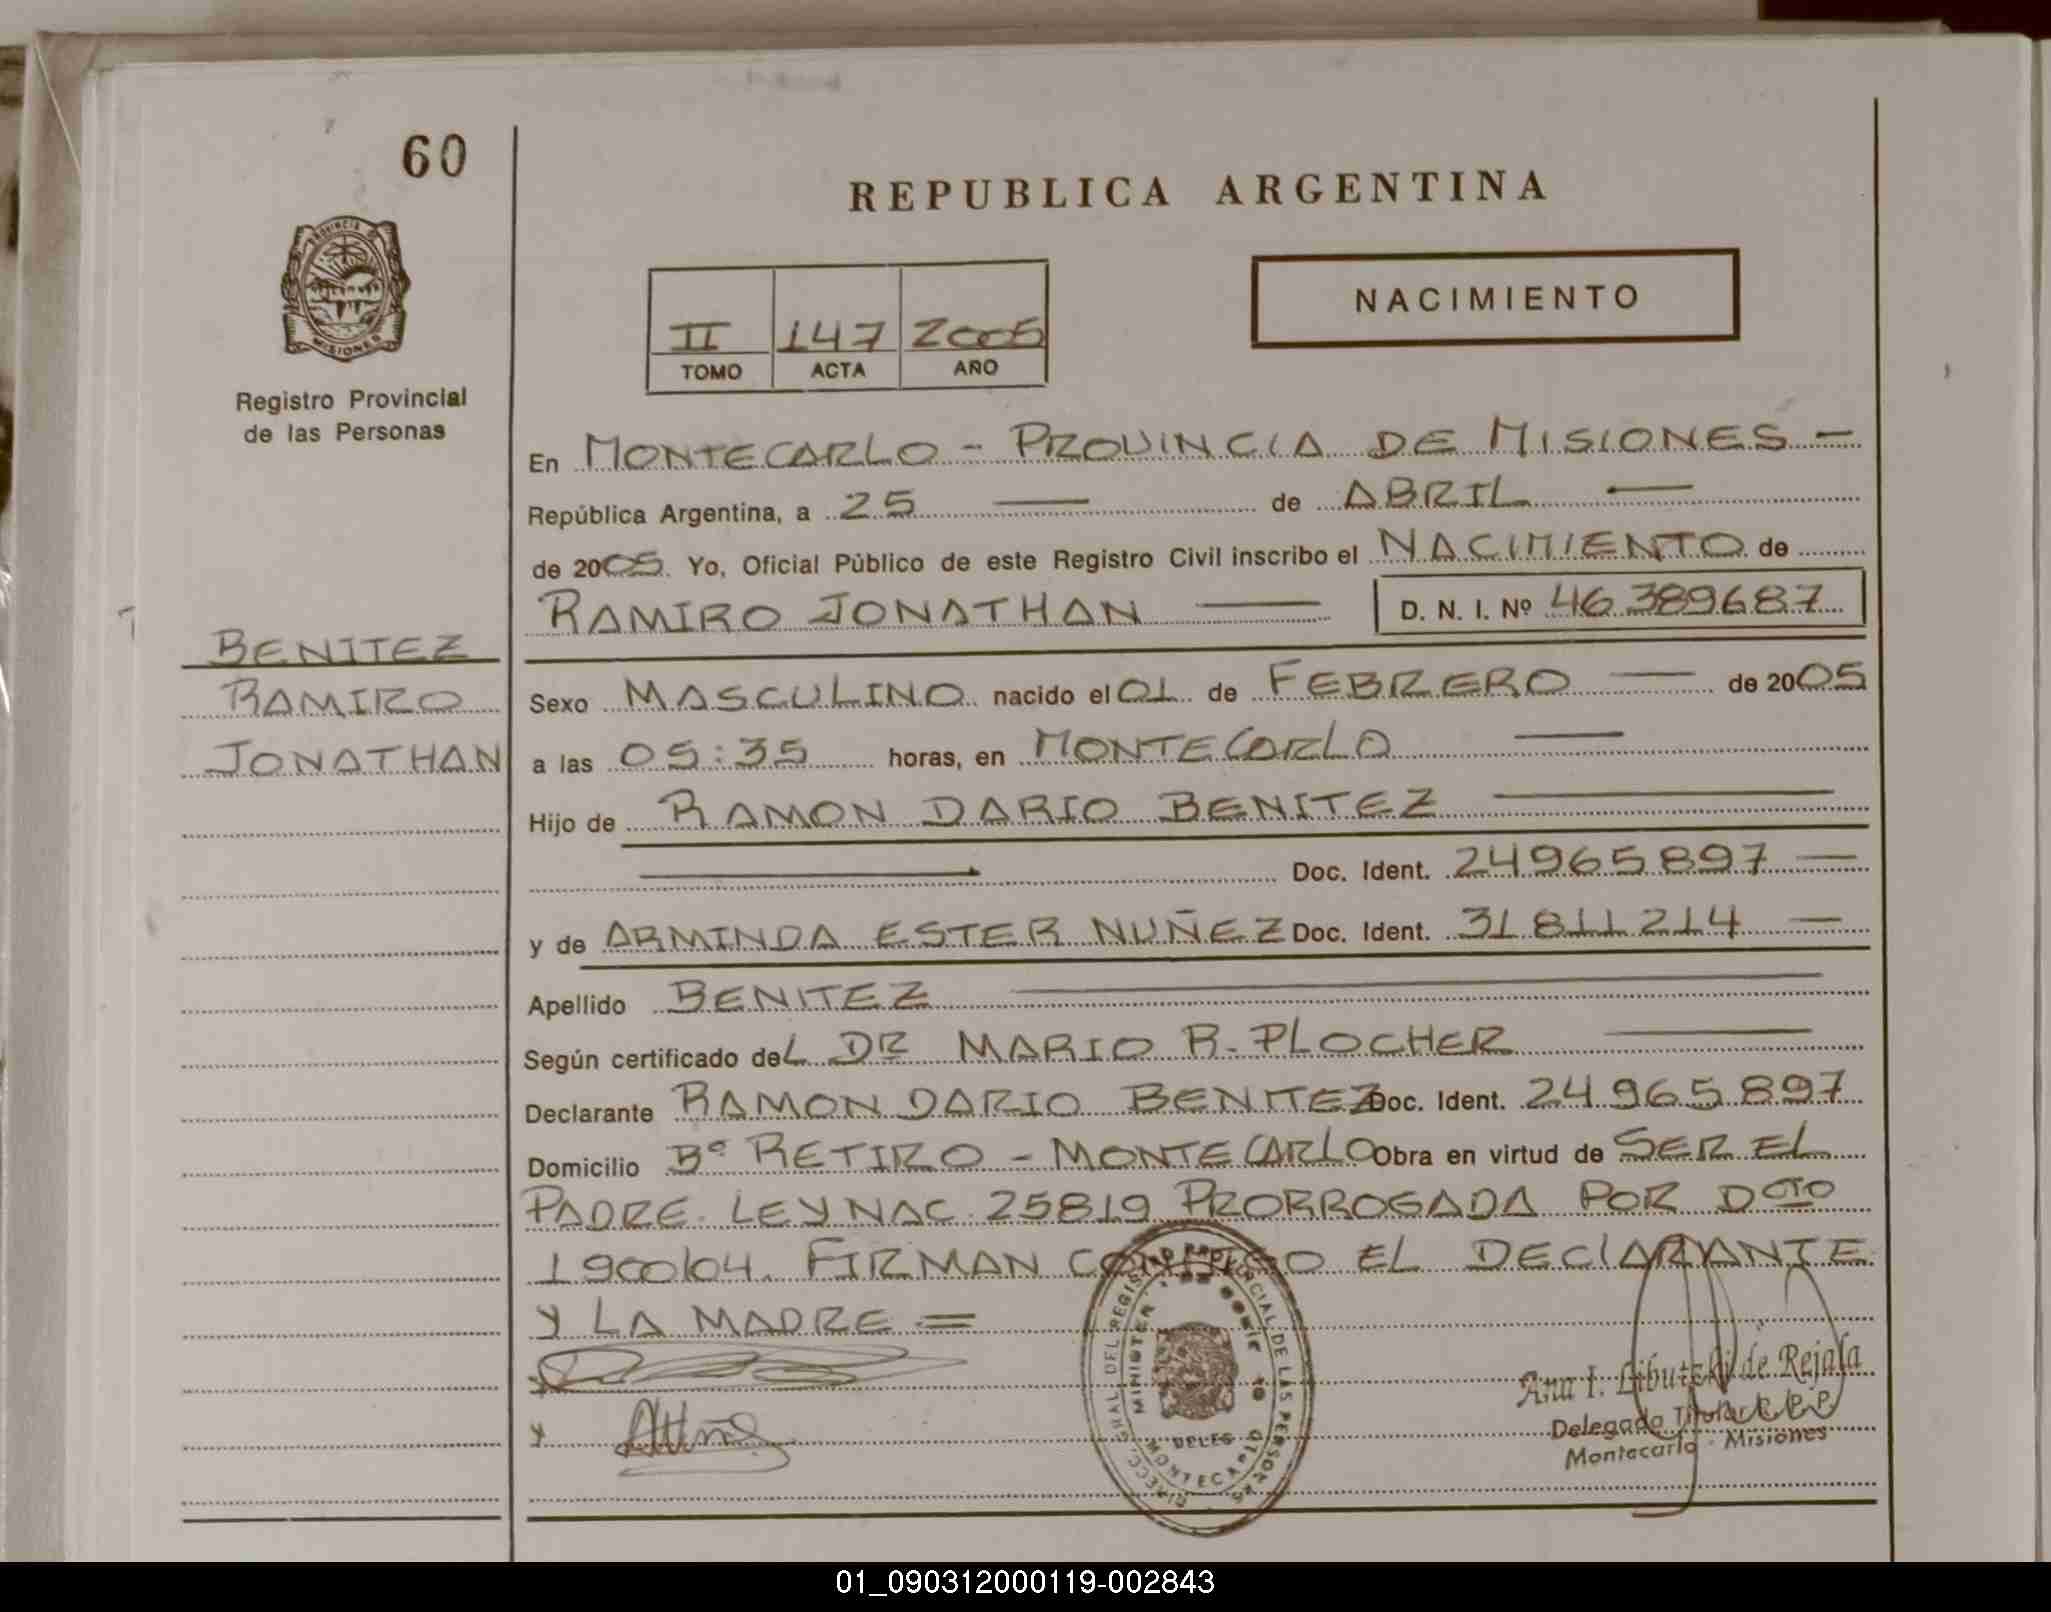 60
REPUBLICA ARGENTINA
PROVINCIA DE
MISIONES
NACIMIENTO
II 147 2005
TOMO ACTA AÑO
Registro Provincial
de las Personas
En MONTECARLO - PROVINCIA DE MISIONES -
República Argentina, a 25 — de ABRIL —
de 2005. Yo, Oficial Público de este Registro Civil inscribo el NACIMIENTO de
RAMIRO JONATHAN — D. N. I. Nº 46 389687
BENITEZ
RAMIRO
JONATHAN
Sexo MASCULINO nacido el 01 de FEBRERO — de 2005
a las 05:35 horas, en MONTECARLO —
Hijo de RAMON DARIO BENITEZ —
— Doc. Ident. 24965897 —
y de ARMINDA ESTER NUÑEZ Doc. Ident. 31811214 —
Apellido BENITEZ —
Según certificado deL DR MARIO R. PLOCHER —
Declarante RAMON DARIO BENITEZ Doc. Ident. 24965897
Domicilio Bº RETIRO - MONTECARLO Obra en virtud de SER EL
PADRE. LEY NAC. 25819 PRORROGADA POR Dcto
1900/04. FIRMAN CONMIGO EL DECLARANTE
Y LA MADRE =
DIRECC. GRAL DEL REGISTRO PROVINCIAL DE LAS PERSONAS
MONTECARLO
Ana I. Libutzki de Rejala
Delegada Titular R. P. P.
Montecarlo - Misiones
01_090312000119-002843